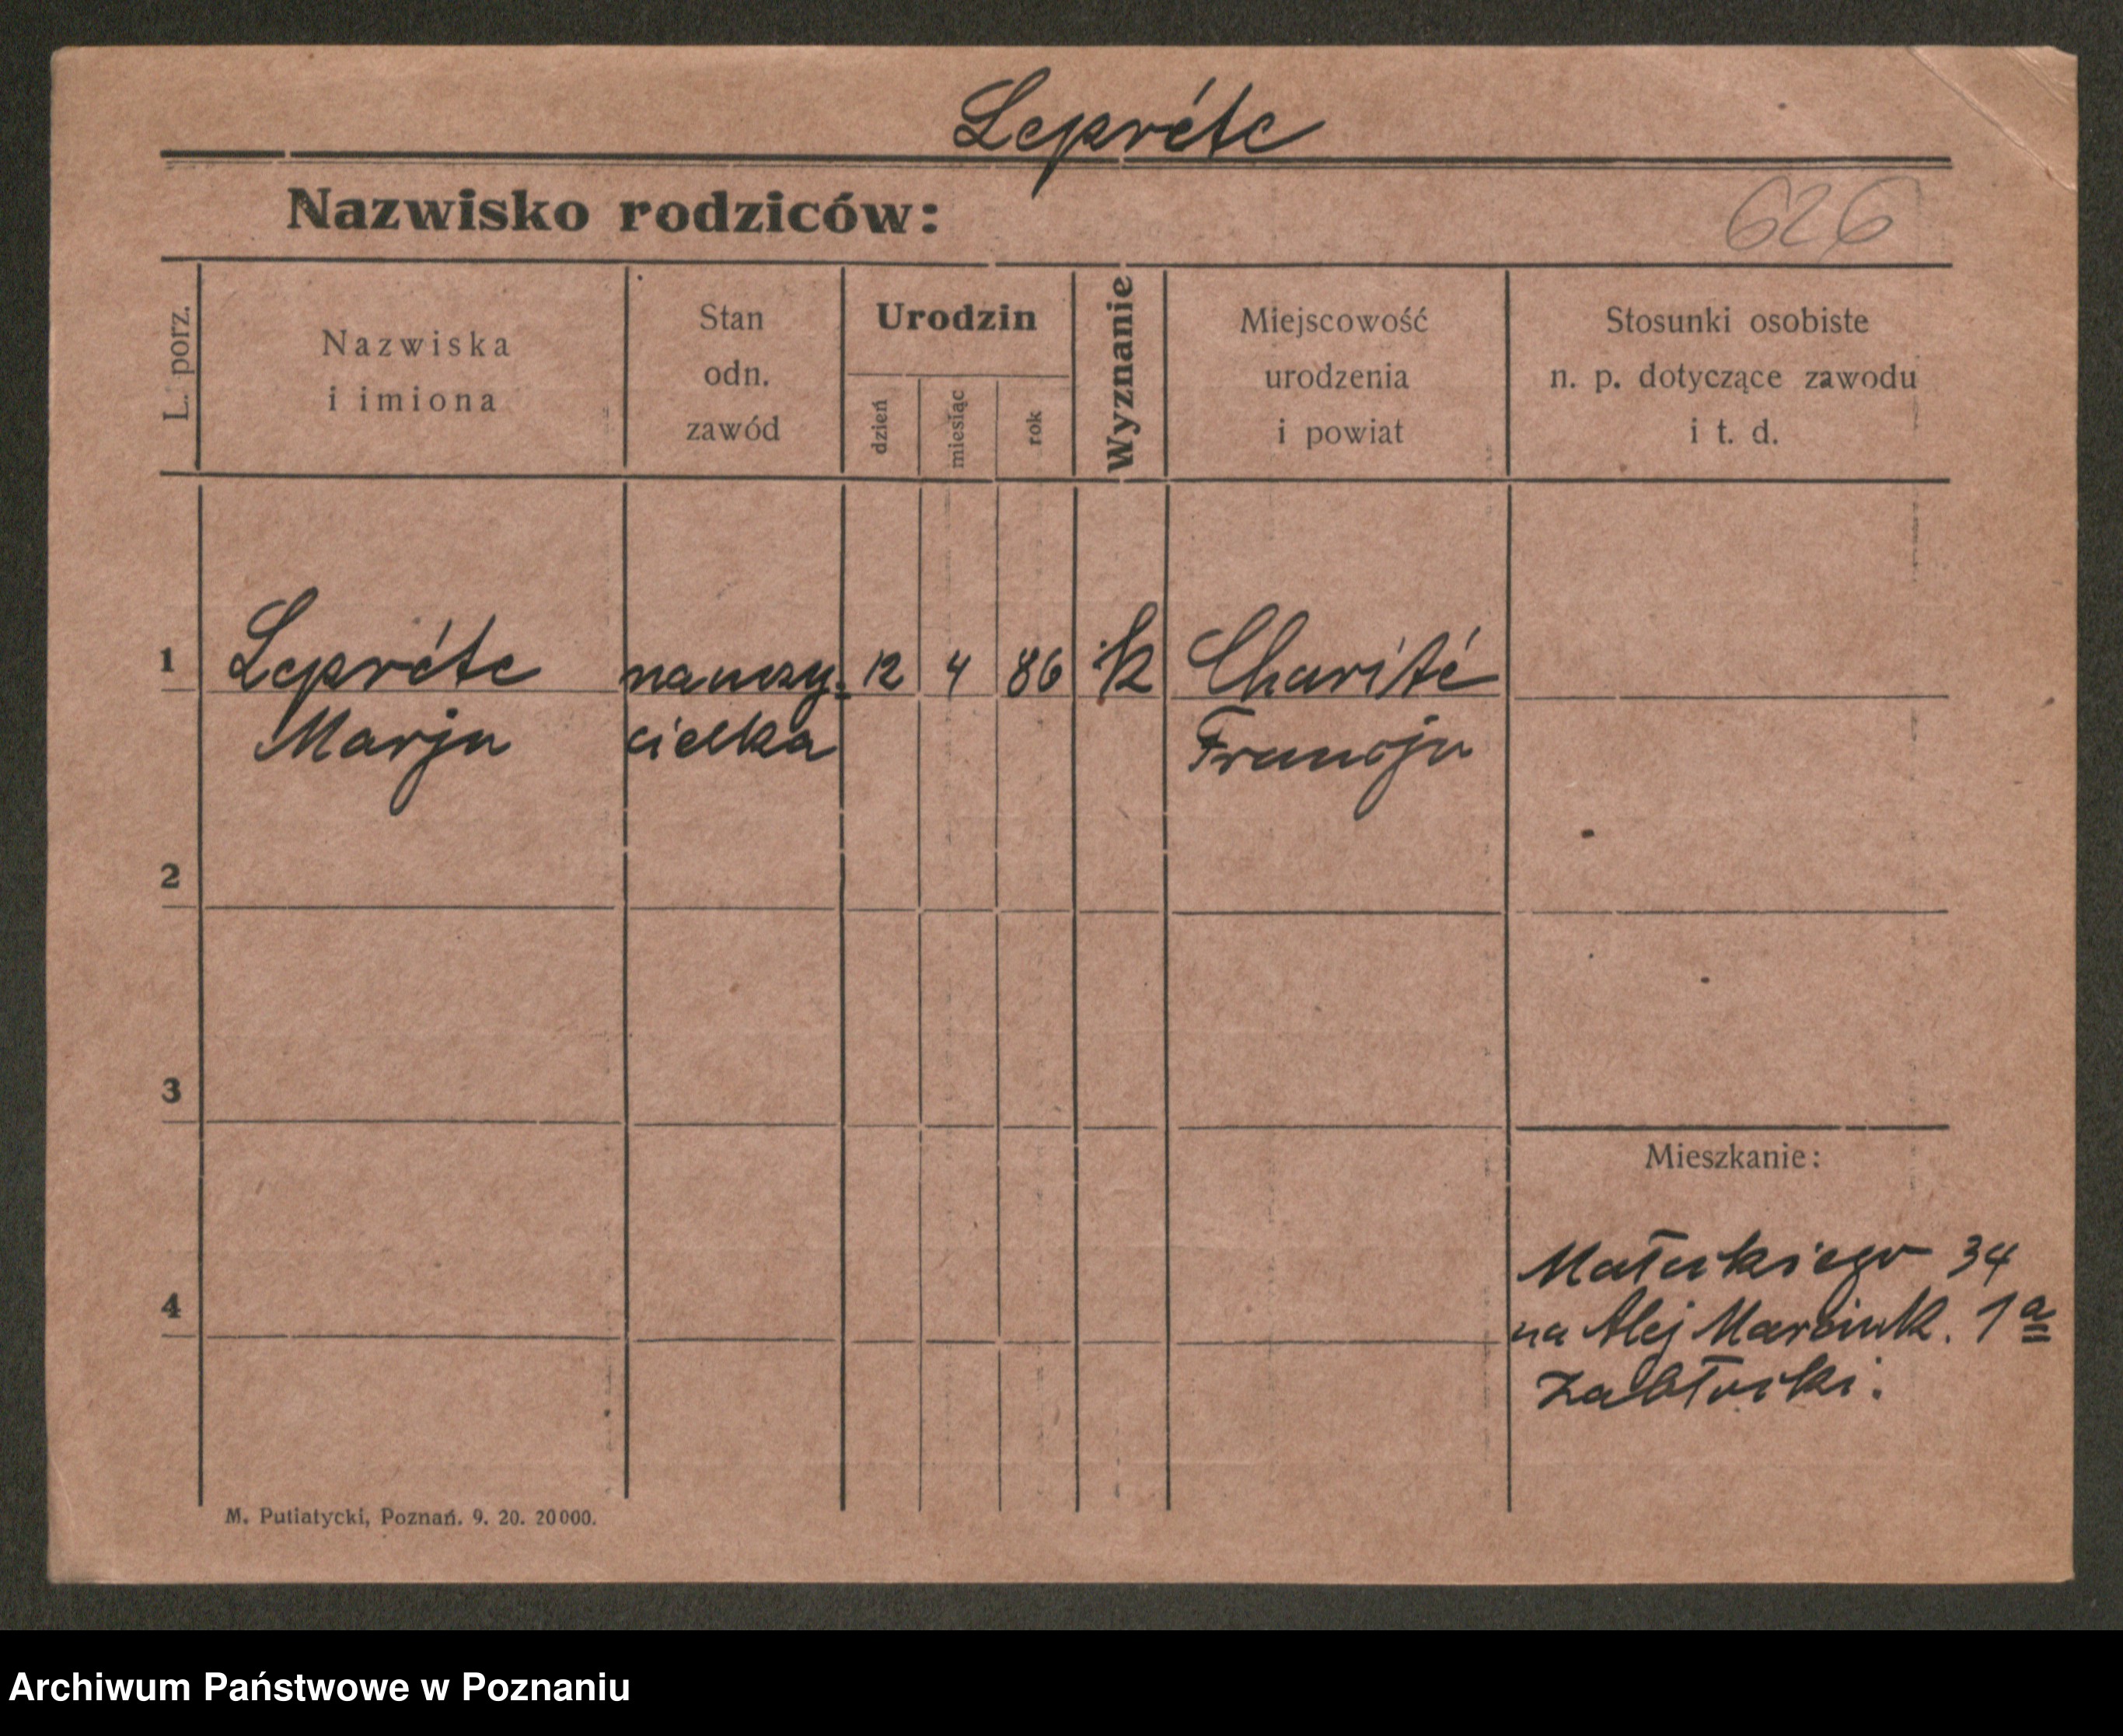 Lepréte
Nazwisko rodziców:
626
L. porz.
Nazwiska
i imiona
Stan
odn.
zawód
Urodzin
dzień
miesiąc
rok
Wyznanie
Miejscowość
urodzenia
i powiat
Stosunki osobiste
n. p. dotyczące zawodu
i t. d.
1 Lepréte nauczy- 12 4 86 k Charité
Marja cielka Francja
2
3
Mieszkanie:
Małeckiego 34
4
na Alej Marcink. 1a
Zabłocki.
M. Putiatycki, Poznań. 9. 20. 20000.
Archiwum Państwowe w Poznaniu